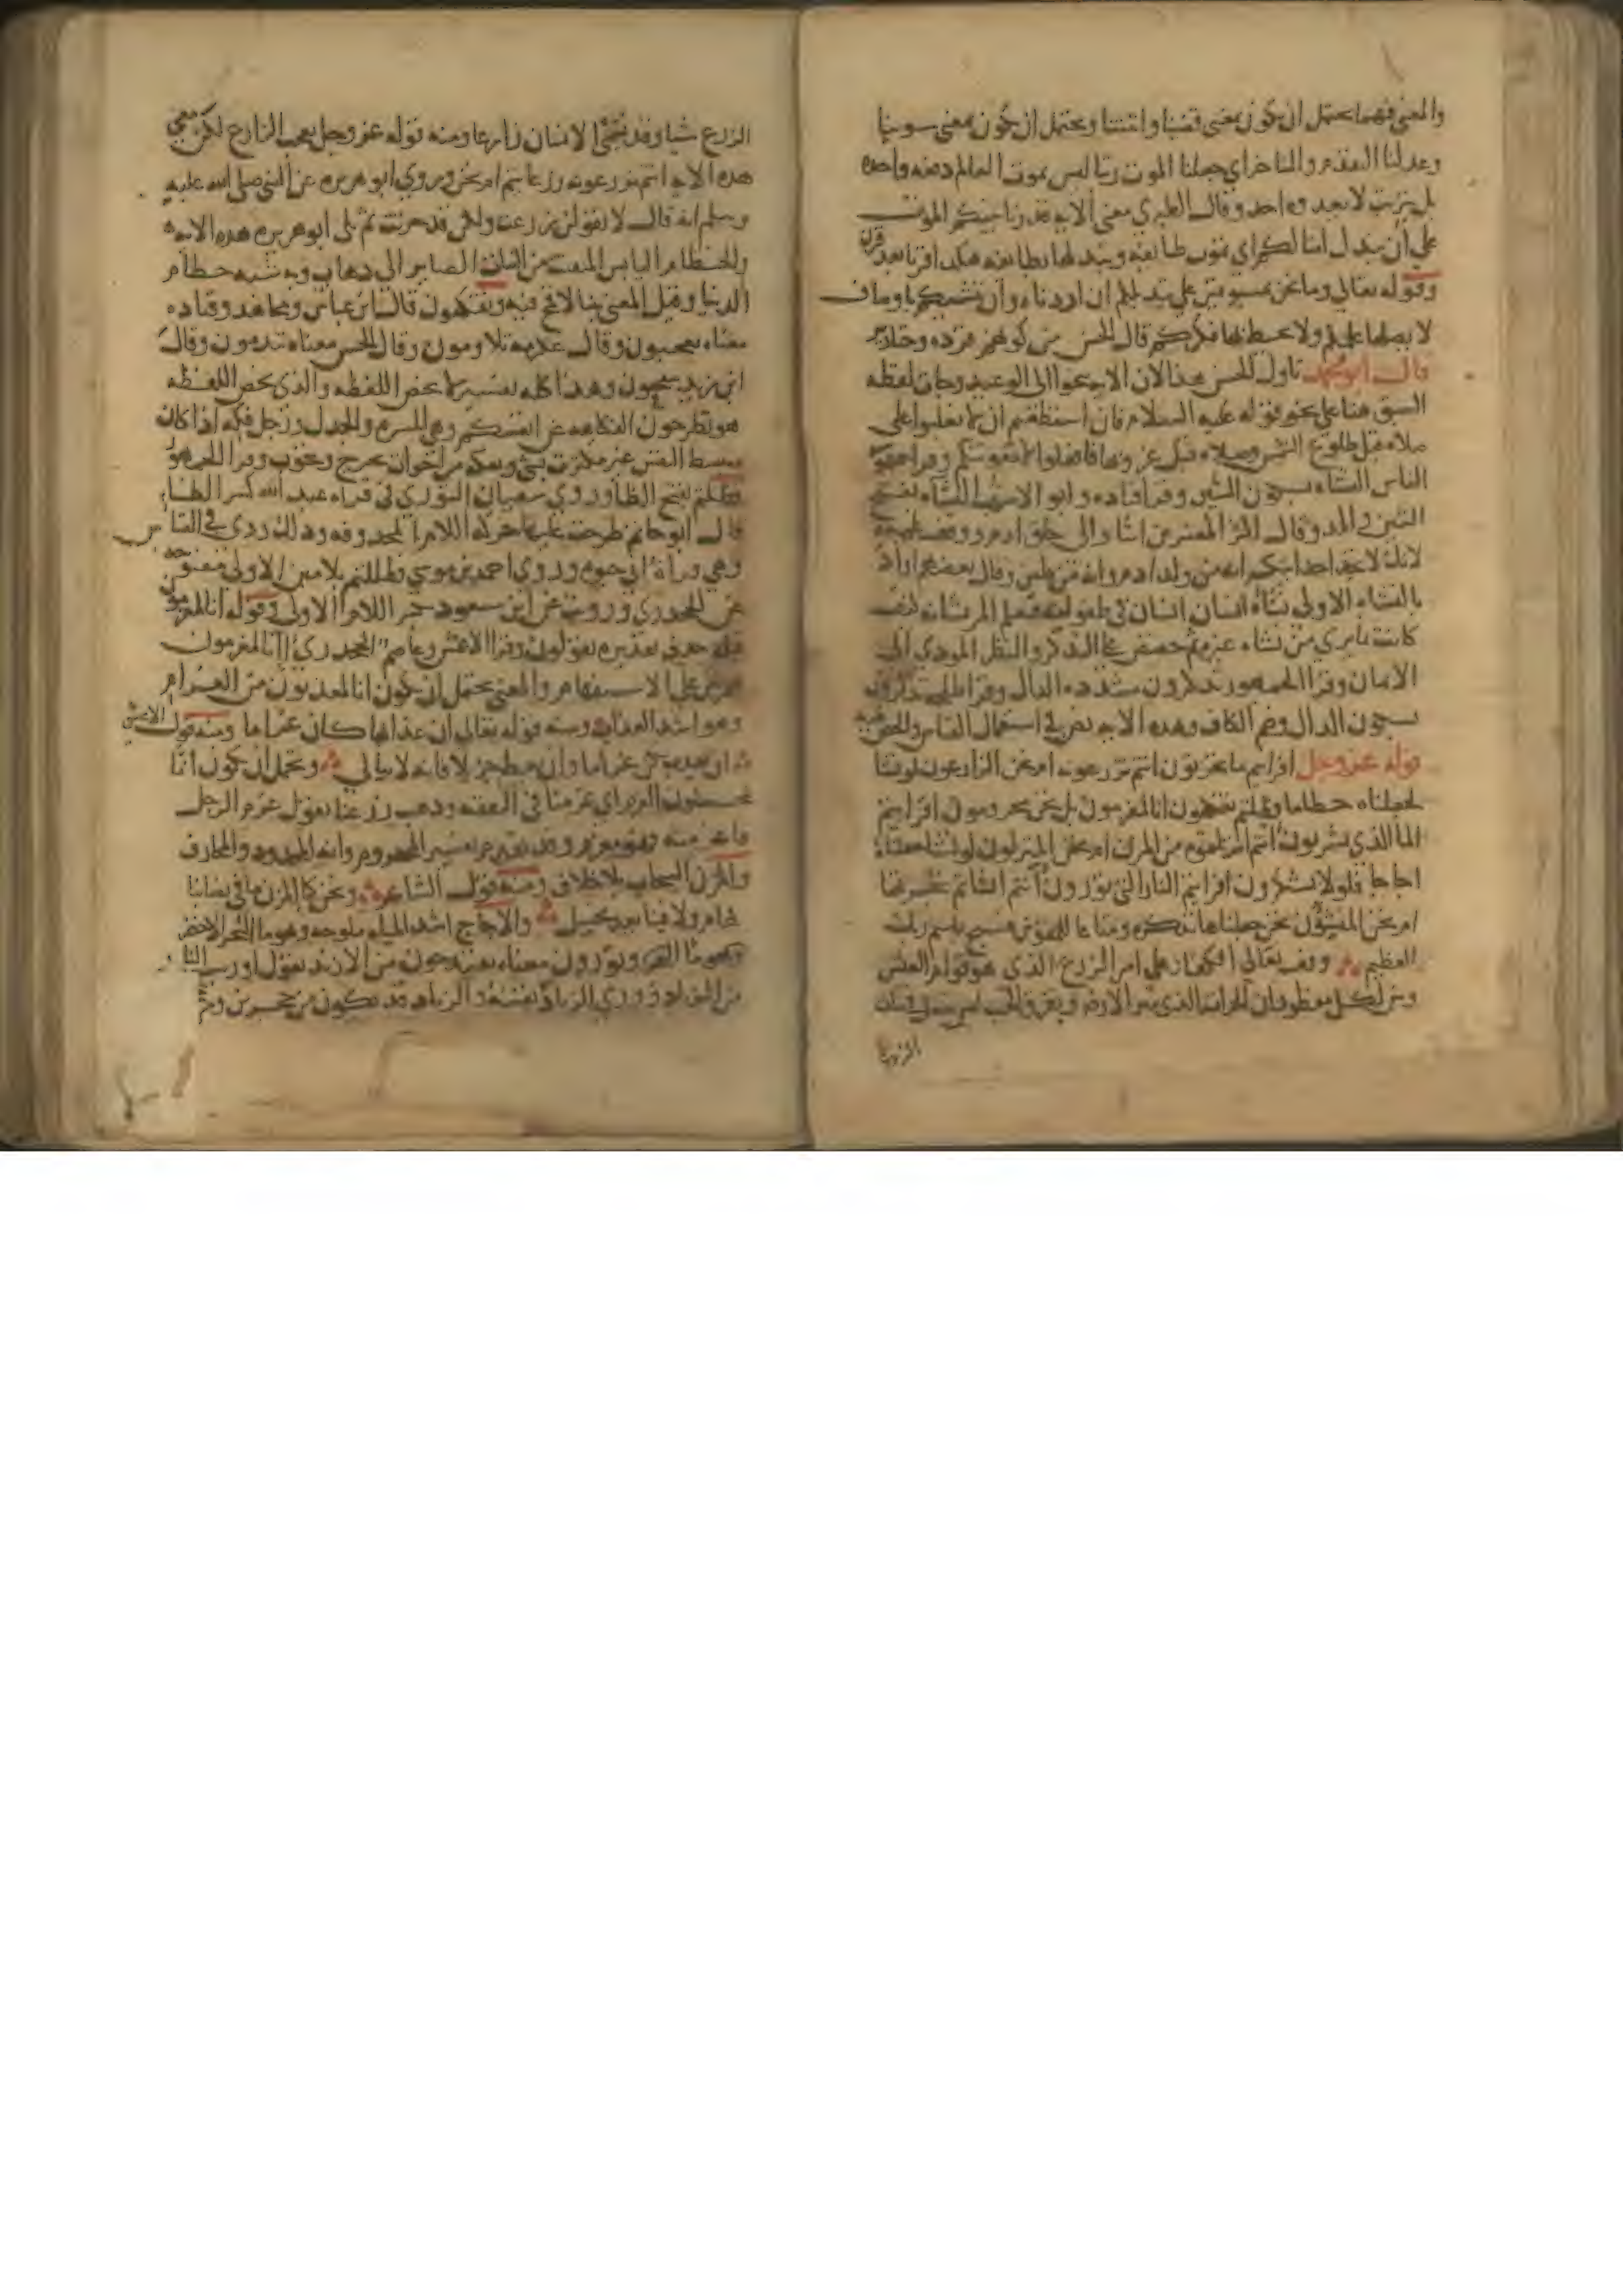 والمعنى فيهما يحتمل ان يكون بمعنى قضينا واثبتنا ويحتمل ان يكون بمعنى سوينا
وعدلنا التقدم والتاخر اي جعلنا الموت رتبا ليس بموت العالم دفعه واحده
بل بترتيب لا يعدوه احد وقال الطبري معنى الايه قدرنا بينكم الموت
على ان نبدل امثالكم اي بموت طائفه ونبدلها بطائفه هكذا قرنا بعد قرن
وقوله تعالى وما نحن بمسبوقين على تبديلكم ان اردناه وان ننشيكم باوصاف
لا يصلها علمكم ولا يحيط بها فكركم قال الحسن من كونهم قرده وخنازير
قال ابو محمد تاول الحسن هذا لان الايه تنحو الى الوعيد وجات لفظه
السبق هنا على نحو قوله عليه السلام فان استطعتم ان لا تغلبوا على
صلاه قبل طلوع الشمس وصلاه قبل غروبها فافعلوا وقرا جمهور
الناس النشاه بسكون الشين وقرا قتاده وابو الاشهب النشاه بفتح
الشين والمد وقال اكثر المفسرين اشار الى خلق ادم ووقف عليه
لانك لا تجد احدا ينكر انه من ولد ادم وانه من طين وقال بعضهم اراد
بالنشاه الاولى نشاه انسان انسان في طفولته فيعلم المر نشاته كيف
كانت بما يرى من نشاه غيره ثم حضض على التذكر والنظر المودي الى
الايمان وقرا الجمهور تذكرون مشدده الذال وقرا طلحه تذكرون
بسكون الذال وضم الكاف وهذه الايه نص في استعمال القياس والحض عليه
قوله عز وجل افرايتم ما تحرثون اانتم تزرعونه ام نحن الزارعون لو نشا
لجعلناه حطاما فظلتم تفكهون انا لمغرمون بل نحن محرومون افرايتم
الما الذي تشربون اانتم انزلتموه من المزن ام نحن المنزلون لو نشا جعلناه
اجاجا فلولا تشكرون افرايتم النار التي تورون اانتم انشاتم شجرتها
ام نحن المنشؤن نحن جعلناها تذكره ومتاعا للمقوين فسبح باسم ربك
العظيم وقف تعالى الكفار على امر الزرع الذي هو قوام العيش
وبين لكل مفطور ان الحراث الذي يثير الارض ويفرق الحب ليس يفعل في نبات
الزرع
الزرع شيا وقد يسمى الانسان زارعا ومنه قوله عز وجل يعجب الزراع لكن معنى
هذه الايه اانتم تزرعونه زرعا يتم ام نحن وروى ابو هريره عن النبي صلى الله عليه
وسلم انه قال لا تقولن زرعت ولكن قل حرثت ثم تلى ابو هريره هذه الايه
والحطام اليابس المتفتت من النبات الصاير الى ذهاب وبه شبه حطام
الدنيا وقيل المعنى نبتا لا قمح فيه وتفكهون قال ابن عباس ومجاهد وقتاده
معناه تعجبون وقال عكرمه تلاومون وقال الحسن معناه تندمون وقال
ابن زيد تفجعون وهذا كله تفسير لا يخص اللفظه والذي يخص اللفظه
هو تطرحون الفكاهه عن انفسكم وهي المسره والجدل ورجل فكه اذا كان
منبسط النفس غير مكترث بشي وتفكه من اخوات تحرج وتحوب وقرا الجمهور
فظلتم بفتح الظا وروى سفيان الثوري في قراه عبد الله كسر الظاء
قال ابو حاتم طرحت عليها حركه اللام المحذوفه وذلك ردي في القياس
وهي قراه ابي حيوه وروى احمد بن موسى فظللتم بلامين الاولى مفتوحه
عن الجحدري ورويت عن ابن مسعود بكسر اللام الاولى وقوله انا لمغرمون
قبله حذف تقديره يقولون وقرا الاعمش وعاصم الجحدري اانا لمغرمون
بهمزتين على الاستفهام والمعنى يحتمل ان يكون انا لمعذبون من الغرام
وهو اشد العذاب ومنه قوله تعالى ان عذابها كان غراما ومنه قول الاعشى
ان يعذب يكن غراما وان يعط جزيلا فانه لا يبالي ويحتمل ان يكون انا
لمحملون الغرم اي غرمنا في النفقه وذهب زرعنا تقول غرم الرجل
واغرمته فهو مغرم وقد تقدم تفسير المحروم وانه المحدود والمحارف
والمزن السحاب بلا خلاف ومنه قول الشاعر ونحن كما المزن ما في نصابنا
كهام ولا فينا يعد بخيل والاجاج اشد المياه ملوحه وهو ما البحر الاخضر
وتورون معناه تقتدحون من الازند تقول اوريت النار
من الزناد وورى الزناد نفسه والزناد قد يكون من حجرين ومن